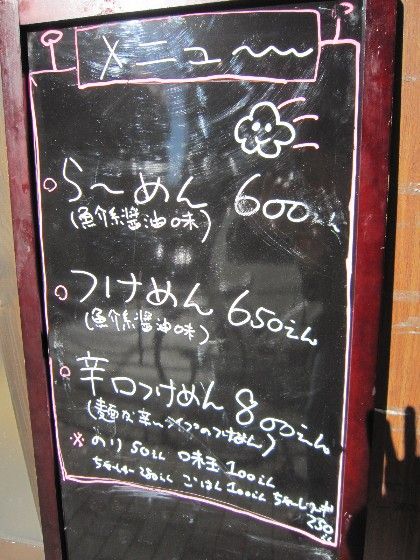 メニュ〜
らーめん 600えん
(魚介系醤油味)
つけめん 650えん
(魚介系醤油味)
辛口つけめん 800えん
(麺が辛いタイプのつけめん)
※ のり 50えん 味玉 100えん
ちゃーしゅー 250えん ごはん 100えん
250えん